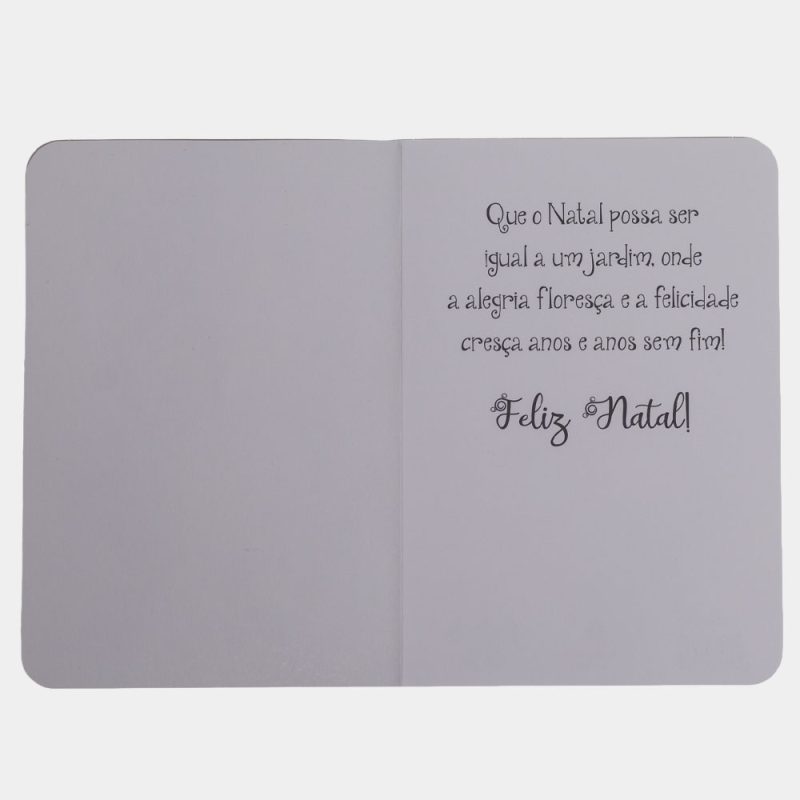 Que o Natal possa ser
igual a um jardim, onde
a alegria floresça e a felicidade
cresça anos e anos sem fim!
Feliz Natal!